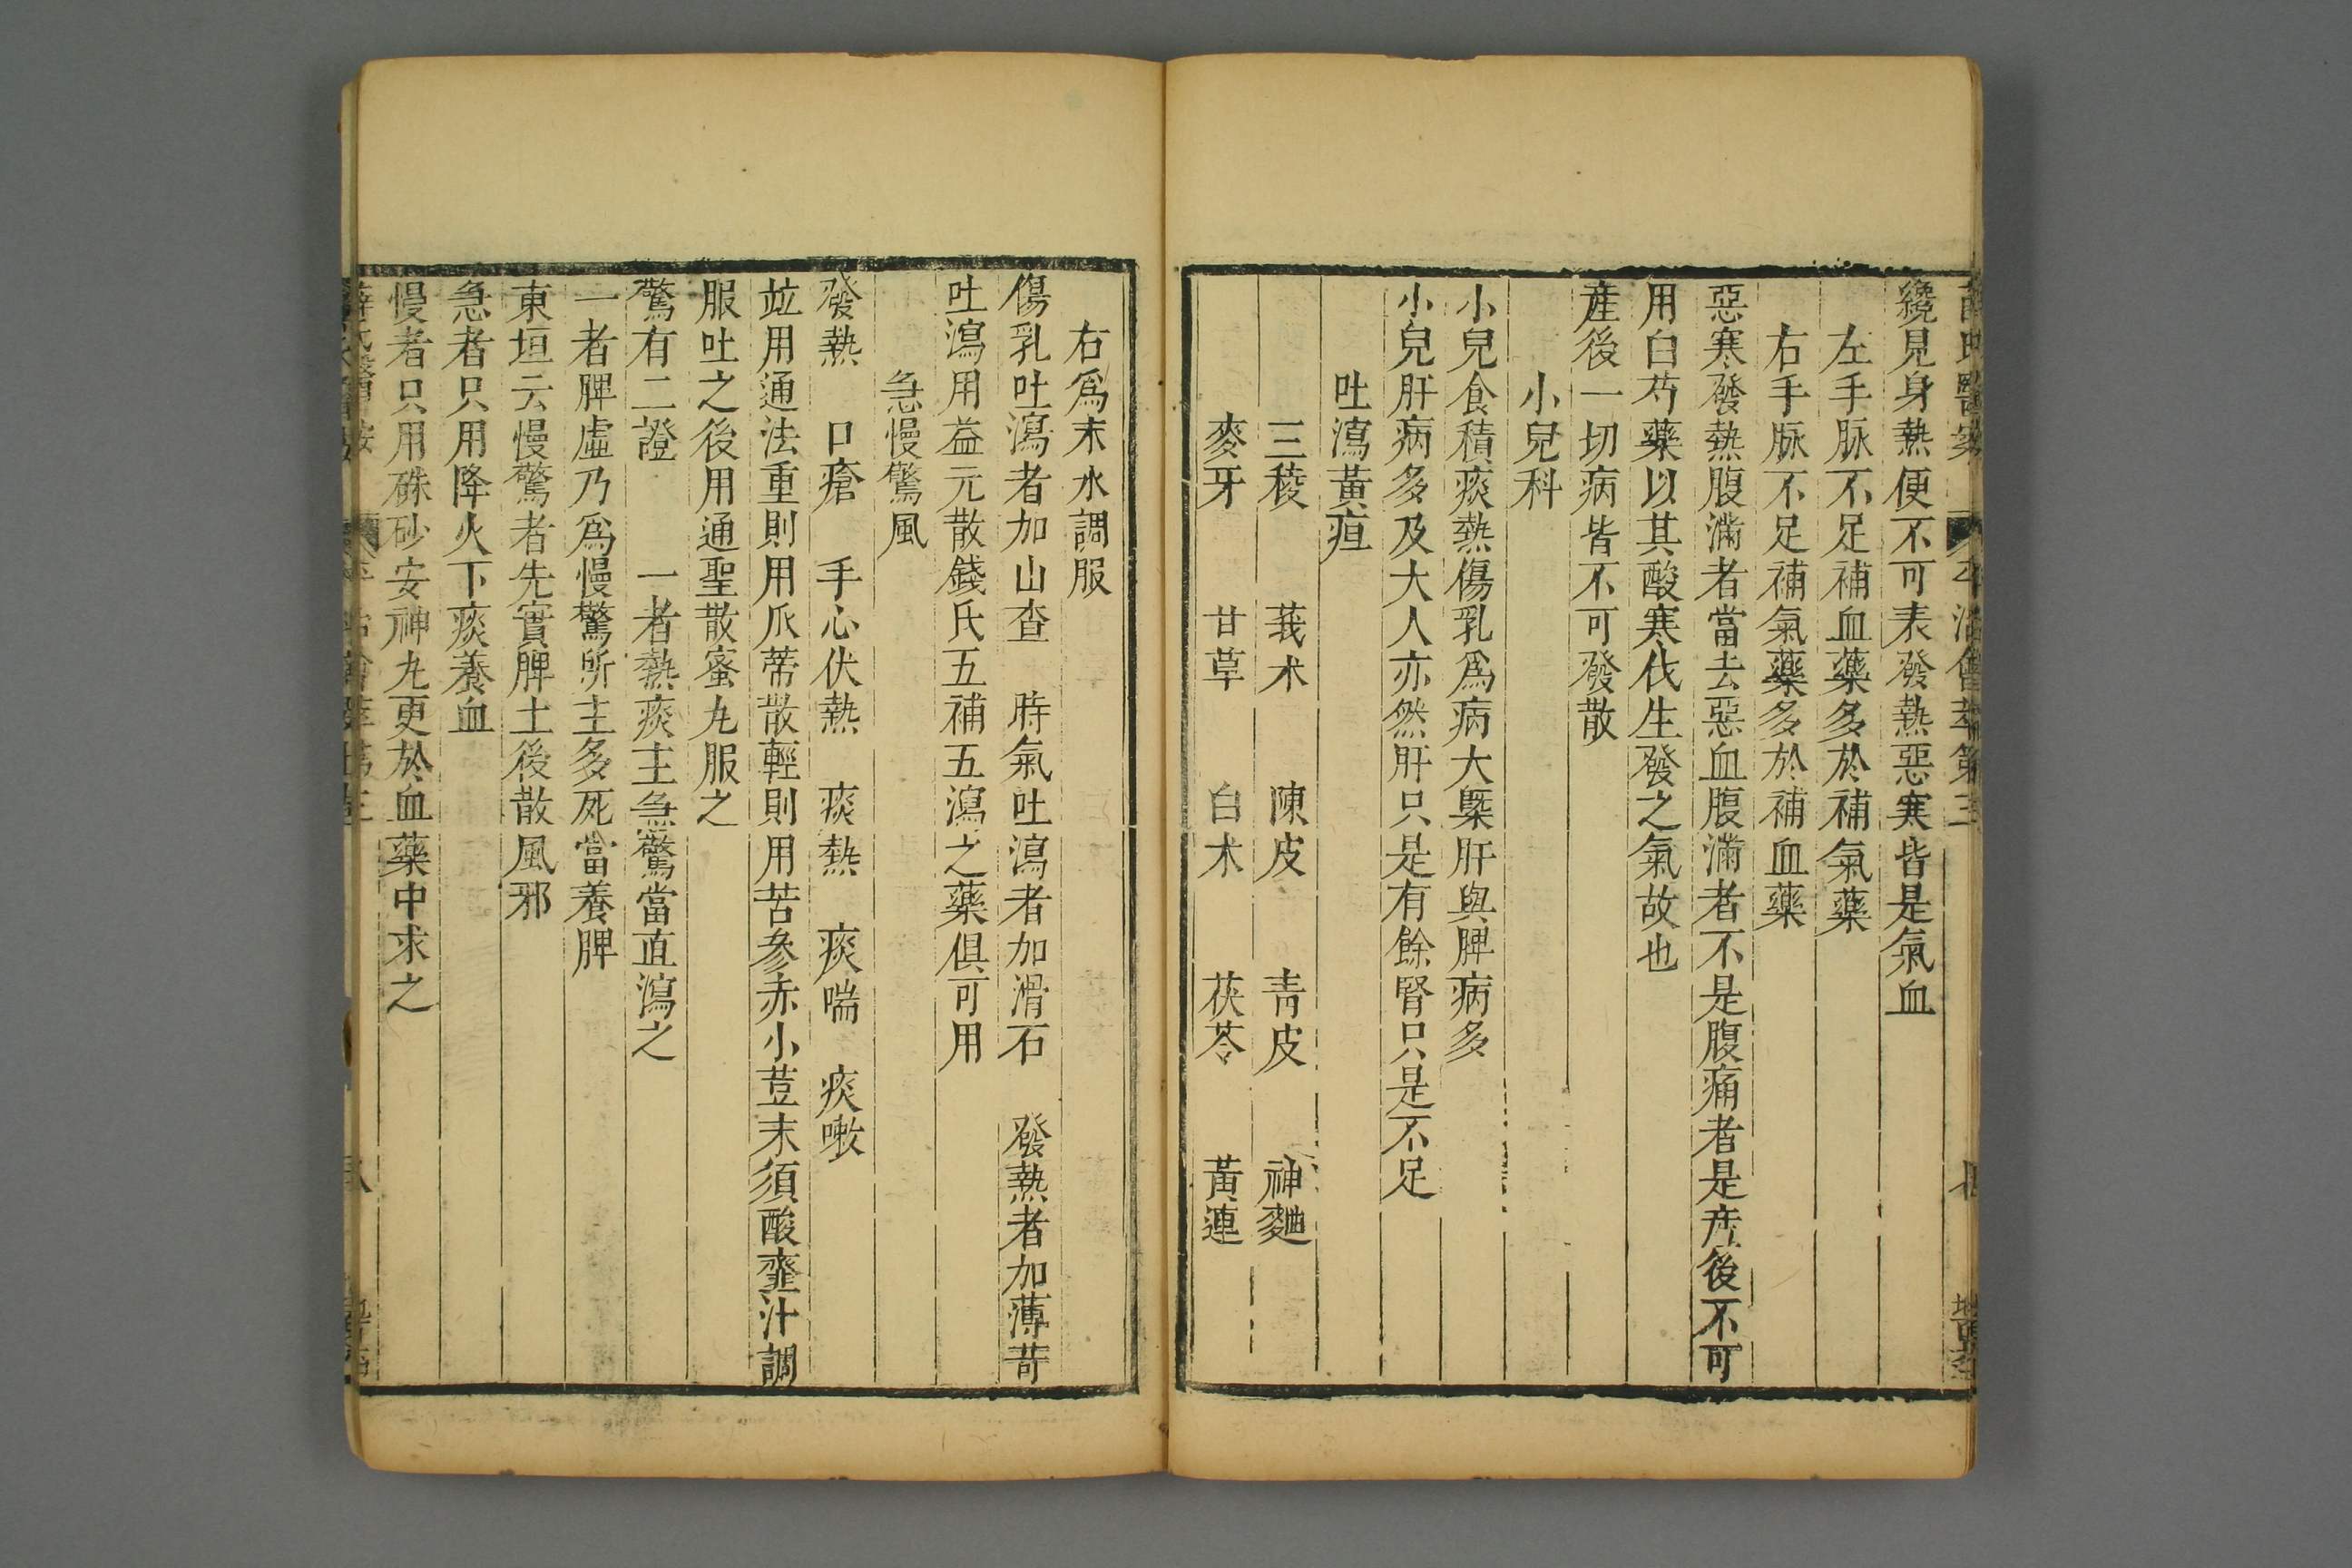 纔見身熱便不可表發熱惡寒皆是氣血
左手脉不足補血藥多於補氣藥
右手脉不足補氣藥多於補血藥
惡寒發熱腹滿者當去惡血腹滿者不是腹痛者是産後不可
用白芍藥以其酸寒伐生發之氣故也
産後一切病皆不可發散
小兒科
小兒食積痰熱傷乳爲病大槩肝與脾病多
小兒肝病多及大人亦然肝只是有餘腎只是不足
吐瀉黃疸
三稜 莪术 陳皮 青皮 神麯
麥牙 甘草 白术 茯苓 黃連
右爲末水調服
傷乳吐瀉者加山查 時氣吐瀉者加滑石 發熱者加薄荷
吐瀉用益元散錢氏五補五瀉之藥俱可用
急慢驚風
發熱 口瘡 手心伏熱 痰熱 痰喘 痰嗽
竝用通法重則用瓜蒂散輕則用苦參赤小荳末須酸虀汁調
服吐之後用通聖散蜜丸服之
驚有二證 一者熱痰主急驚當直瀉之
一者脾虛乃爲慢驚所主多死當養脾
東垣云慢驚者先實脾土後散風邪
急者只用降火下痰養血
慢者只用硃砂安神丸更於血藥中求之